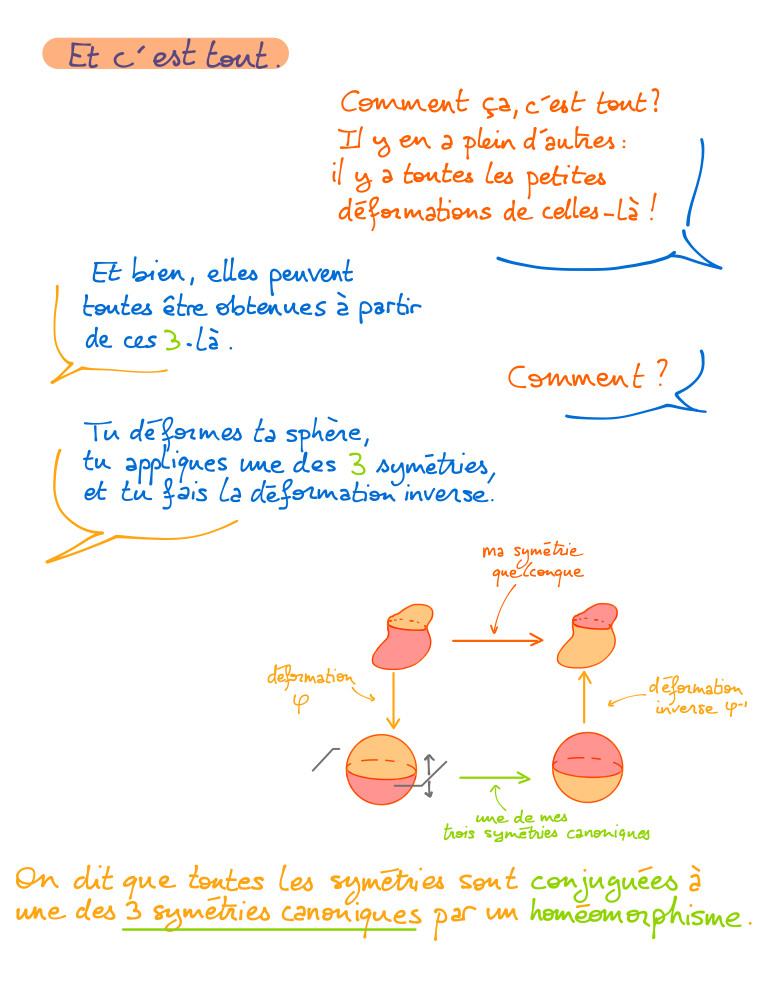 Et c'est tout.
Comment ça, c'est tout?
Il y en a plein d'autres :
il y a toutes les petites
déformations de celles-là !
Et bien, elles peuvent
toutes être obtenues à partir
de ces 3-là.
Comment ?
Tu déformes ta sphère,
tu appliques une des 3 symétries,
et tu fais la déformation inverse.
ma symétrie
quelconque
déformation
φ
déformation
inverse φ⁻¹
une de mes
trois symétries canoniques
On dit que toutes les symétries sont conjuguées à
une des 3 symétries canoniques par un homéomorphisme.